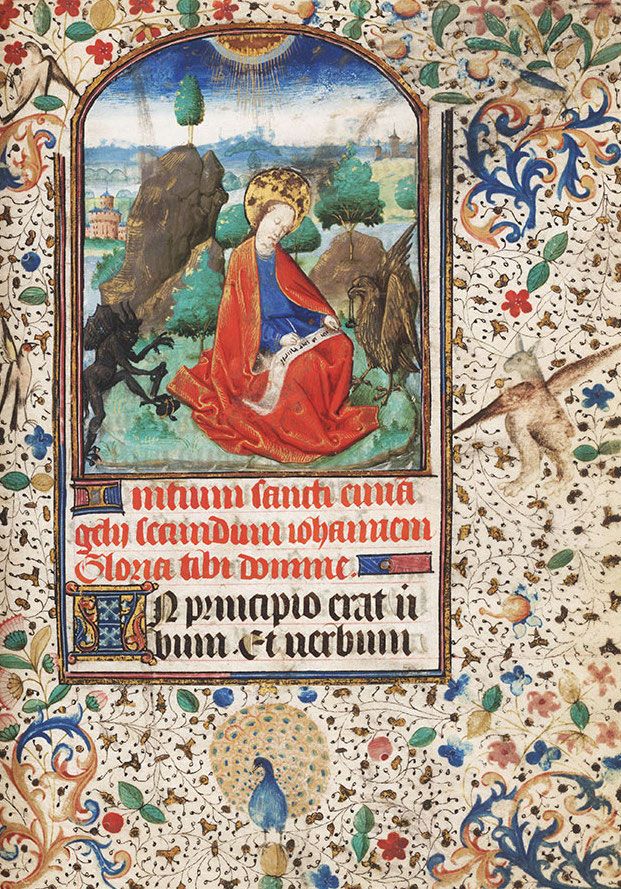 Initium sancti euuā
gelij secundum iohannem
Gloria tibi domine.
IN principio erat ū
bum. Et uerbum